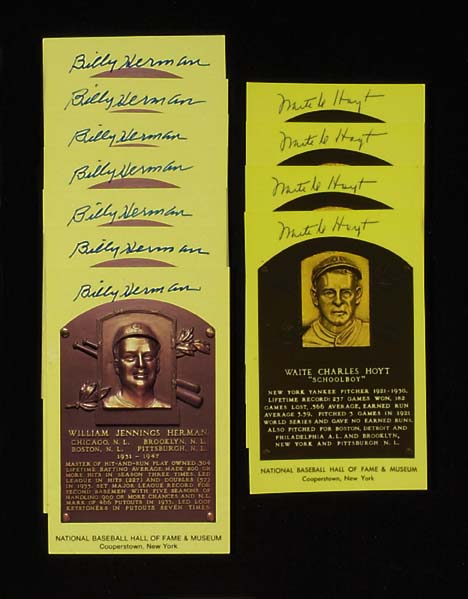 Billy Herman
Billy Herman
Billy Herman
Billy Herman
Billy Herman
Billy Herman
Billy Herman
WILLIAM JENNINGS HERMAN
CHICAGO, N.L. BROOKLYN, N.L.
BOSTON, N.L. PITTSBURGH, N.L.
1931 – 1947
MASTER OF HIT-AND-RUN PLAY OWNED .304
LIFETIME BATTING AVERAGE. MADE 200 OR
MORE HITS IN SEASON THREE TIMES. LED
LEAGUE IN HITS (227) AND DOUBLES (57)
IN 1935. SET MAJOR LEAGUE RECORD FOR
SECOND BASEMEN WITH FIVE SEASONS OF
HANDLING 900 OR MORE CHANCES AND N.L.
MARK OF 466 PUTOUTS IN 1933. LED LOOP
KEYSTONERS IN PUTOUTS SEVEN TIMES.
NATIONAL BASEBALL HALL OF FAME & MUSEUM
Cooperstown, New York
Waite C Hoyt
Waite C Hoyt
Waite C Hoyt
Waite C Hoyt
WAITE CHARLES HOYT
"SCHOOLBOY"
NEW YORK YANKEE PITCHER 1921-1930.
LIFETIME RECORD: 237 GAMES WON, 182
GAMES LOST, .566 AVERAGE, EARNED RUN
AVERAGE 3.59. PITCHED 3 GAMES IN 1921
WORLD SERIES AND GAVE NO EARNED RUNS.
ALSO PITCHED FOR BOSTON, DETROIT AND
PHILADELPHIA A.L. AND BROOKLYN,
NEW YORK AND PITTSBURGH N.L.
NATIONAL BASEBALL HALL OF FAME & MUSEUM
Cooperstown, New York